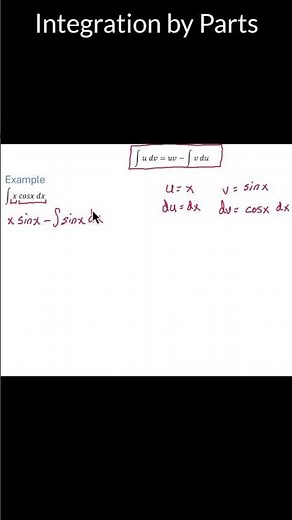 Integration by Parts
∫ u dv = uv − ∫ v du
Example
∫ x cosx dx
u = x    v = sinx
du = dx    dv = cosx dx
x sinx − ∫ sinx dx